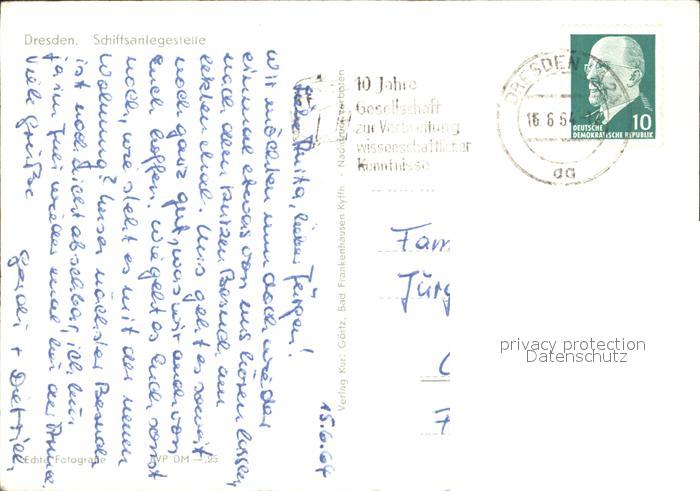 Dresden. Schiffsanlegestelle
Liebe Anita, lieber Jürgen!
Wir möchten nun doch wieder
einmal etwas von uns hören lassen,
nach dem kurzen Besuch am
letzten mal. Uns geht es soweit
noch ganz gut, was wir auch von
Euch hoffen. Wie geht es Euch sonst
noch, wie steht es mit der neuen
Wohnung? Unser nächster Besuch
ist noch nicht absehbar, ich bin
ja im Juni wieder mal bei der
Viele Grüße
Gerdi + Dietrich
15.6.64
Echte Fotografie
VP DM —,25
Verlag Kurt Görtz, Bad Frankenhausen Kyffh. Nachdruck verboten
10 Jahre
Gesellschaft
zur Verbreitung
wissenschaftlicher
Kenntnisse
DRESDEN
16.6.64
DEUTSCHE
DEMOKRATISCHE REPUBLIK
10
Fam
Jürg
privacy protection
Datenschutz